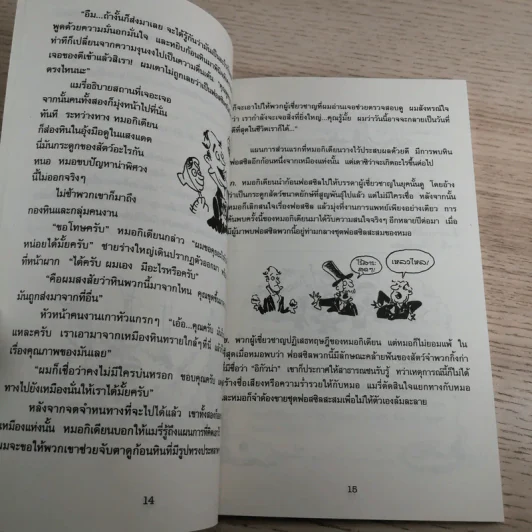 "อืม...ถ้างั้นก็ส่งมาเลย จะได้รู้กันว่ามันเป็น
พูดด้วยความมั่นอกมั่นใจ และหยิบก้อนหินมา
ท่าทีก็เปลี่ยนจากความงุนงงไปเป็นความตื่นเต้น
เจอของดีเข้าแล้วสิเรา! ผมเดาไม่ถูกเลยว่าเป็น
ตรงไหนนะ"
แมรี่อธิบายสถานที่เจอะเจอ
จากนั้นคนทั้งสองก็มุ่งหน้าไปที่นั่น
ทันที ระหว่างทาง หมอกิเดียน
ก็ส่องหินในอุ้งมือดูในแสงแดด
นี่มันกระดูกของสัตว์อะไรกัน
หนอ หมอขบปัญหาน่าพิศวง
นี้ไม่ออกจริงๆ
ไม่ช้าพวกเขาก็มาถึง
กองหินและกลุ่มคนงาน
"ขอโทษครับ" หมอกิเดียนกล่าว "ผมขอคุย
หน่อยได้มั้ยครับ" ชายร่างใหญ่เดินปรากฏตัวออกมา
ที่หน้าผาก "ได้ครับ ผมเอง มีอะไรหรือครับ"
"คือผมสงสัยว่าหินพวกนี้มาจากไหน คุณขุดขึ้น
มันถูกส่งมาจากที่อื่น"
หัวหน้าคนงานเกาหัวแกรกๆ "เอ้อ...คุณครับ
แหละครับ เราเอามาจากเหมืองหินทรายใกล้ๆที่นี่
เรื่องคุณภาพของมันเลย"
"ผมก็เชื่อว่าคงไม่มีใครบ่นหรอก ขอบคุณครับ
ทางไปยังเหมืองนั่นให้เราได้มั้ยครับ"
หลังจากจดจำหนทางที่จะไปได้แล้ว เขาทั้งสอง
เหมืองแห่งนั้น หมอกิเดียนบอกให้แมรี่รู้ถึงแผนการที่คิด
ผมจะขอให้พวกเขาช่วยจับตาดูก้อนหินที่มีรูปทรงประหลาด
14
ก็จะเอาไปให้พวกผู้เชี่ยวชาญที่ผมอ่านเจอช่วยตรวจสอบดู ผมสังหรณ์ใจ
ว่า เรากำลังจะเจอสิ่งที่ยิ่งใหญ่...คุณรู้มั้ย ผมว่าวันนี้อาจจะกลายเป็นวันที่
ดีที่สุดในชีวิตเราก็ได้..."
แผนการส่วนแรกที่หมอกิเดียนวางไว้ประสบผลด้วยดี มีการพบหิน
ฟอสซิลอีกก้อนหนึ่งจากเหมืองแห่งนั้น แต่เดาซิว่าจะเกิดอะไรขึ้นต่อไป
ก. หมอกิเดียนนำก้อนฟอสซิลไปให้บรรดาผู้เชี่ยวชาญในยุคนั้นดู โดยอ้าง
ว่าเป็นกระดูกสัตว์ขนาดยักษ์ที่สูญพันธุ์ไปแล้ว แต่ไม่มีใครเชื่อ หลังจากนั้น
หมอกิเดียนก็เลิกสนใจเรื่องฟอสซิล แล้วมุ่งที่งานการแพทย์เพียงอย่างเดียว การ
ค้นพบครั้งนี้ของหมอกิเดียนมาได้รับความสนใจจริงๆ อีกหลายปีต่อมา เมื่อ
มีผู้มาพบฟอสซิลพวกนี้อยู่ท่ามกลางชุดฟอสซิลสะสมของหมอ
ไม่อาจ
ตลก!
เหลวไหล!
ข. พวกผู้เชี่ยวชาญปฏิเสธทฤษฎีของหมอกิเดียน แต่หมอก็ไม่ยอมแพ้ ใน
ที่สุดเมื่อหมอพบว่า ฟอสซิลพวกนี้มีลักษณะคล้ายฟันของสัตว์จำพวกกิ้งก่า
ที่มีชื่อว่า "อิกัวน่า" เขาก็ประกาศให้สาธารณชนรับรู้ ทว่าเหตุการณ์นี้ก็ไม่ได้
สร้างชื่อเสียงหรือความร่ำรวยให้กับหมอ แมรี่ตัดสินใจแยกทางกับหมอ
และหมอก็จำต้องขายชุดฟอสซิลสะสมเพื่อไม่ให้ตัวเองล้มละลาย
15